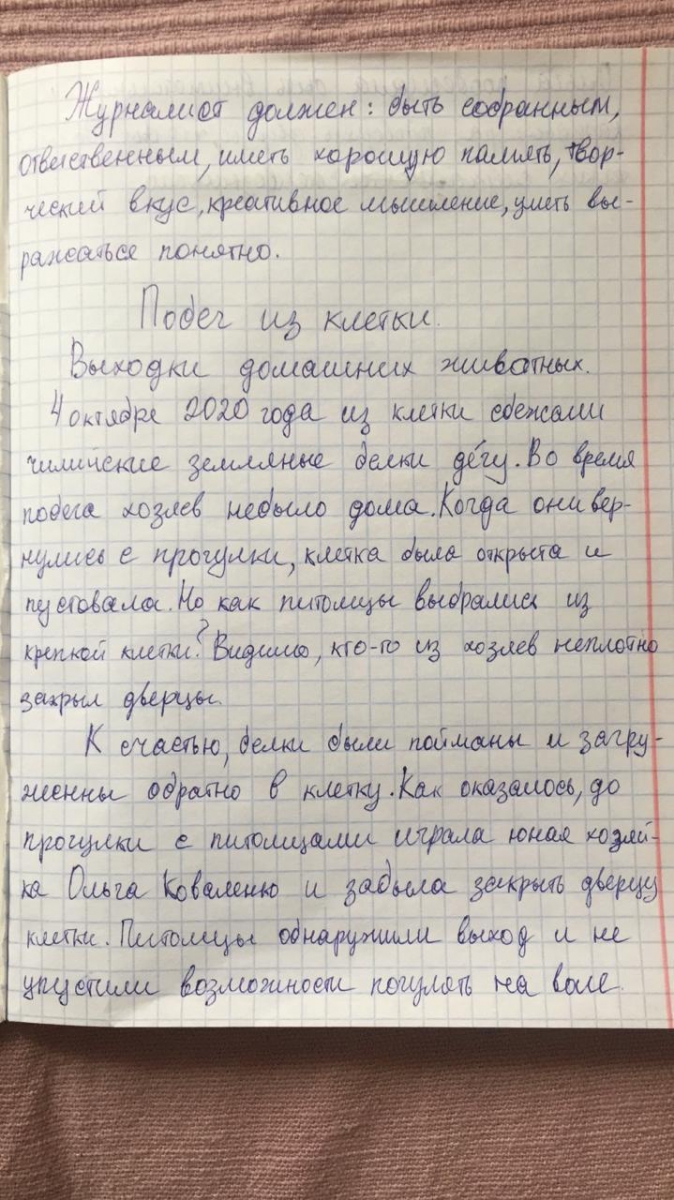 Журналист должен: быть собранным,
ответственным, иметь хорошую память, твор-
ческий вкус, креативное мышление, уметь вы-
ражаться понятно.
Побег из клетки.
Выходки домашних животных.
4 октября 2020 года из клетки сбежали
чилийские земляные белки дегу́. Во время
побега хозяев небыло дома. Когда они вер-
нулись с прогулки, клетка была открыта и
пустовала. Но как питомцы выбрались из
крепкой клетки? Видимо, кто-то из хозяев неплотно
закрыл дверцы.
К счастью, белки были пойманы и загру-
женны обратно в клетку. Как оказалось, до
прогулки с питомцами играла юная хозяй-
ка Ольга Коваленко и забыла закрыть дверцу
клетки. Питомцы обнаружили выход и не
упустили возможности погулять на воле.